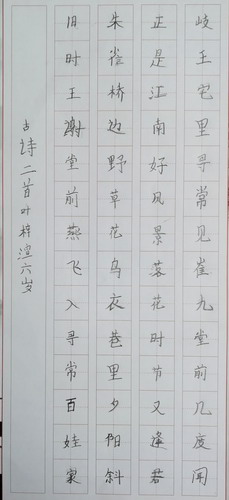 岐王宅里寻常见崔九堂前几度闻
正是江南好风景落花时节又逢君
朱雀桥边野草花乌衣巷里夕阳斜
旧时王谢堂前燕飞入寻常百姓家
古诗二首叶梓渲六岁